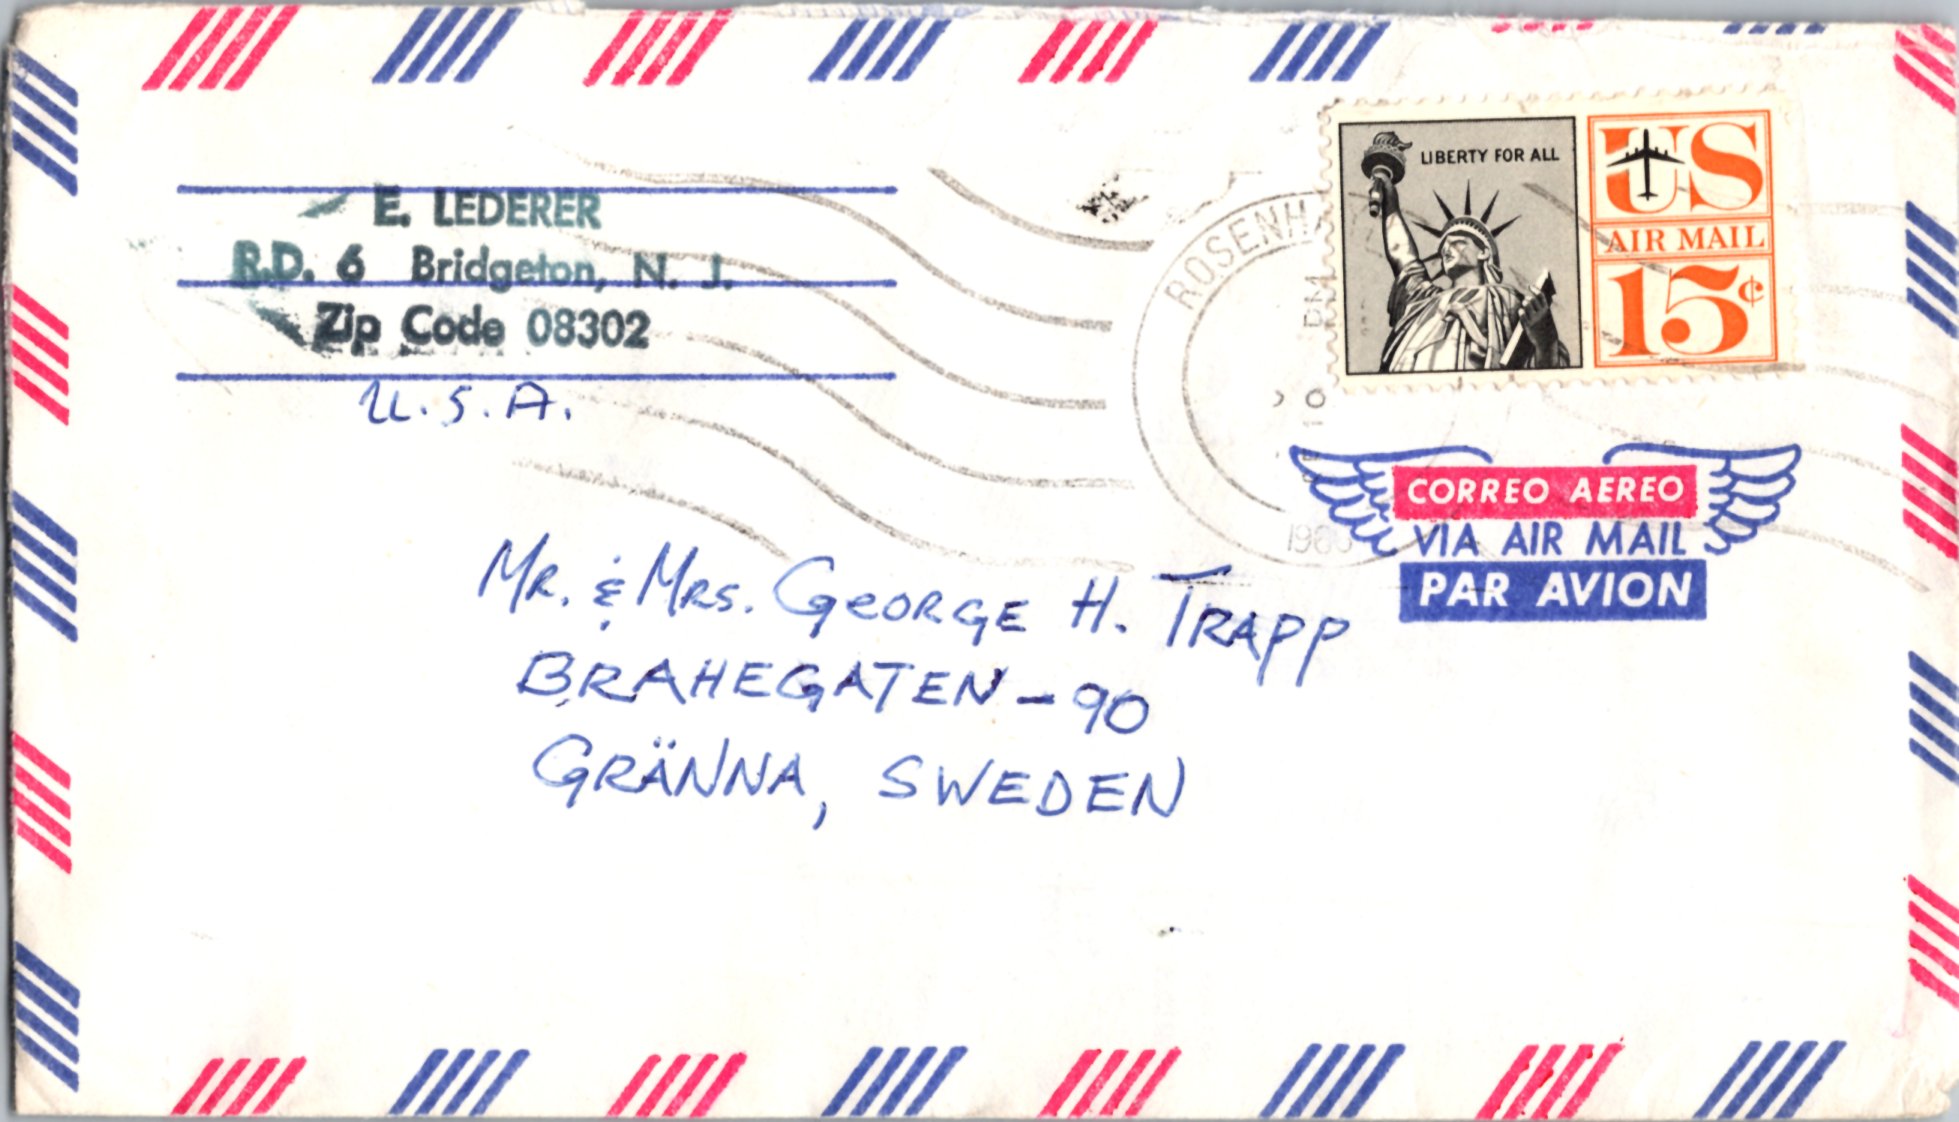 E. LEDERER
R.D. 6 Bridgeton, N. J.
Zip Code 08302
U.S.A.
ROSENH
PM
10
LIBERTY FOR ALL
US
AIR MAIL
15¢
CORREO AEREO
VIA AIR MAIL
PAR AVION
MR. & MRS. GEORGE H. TRAPP
BRAHEGATEN - 90
GRÄNNA, SWEDEN